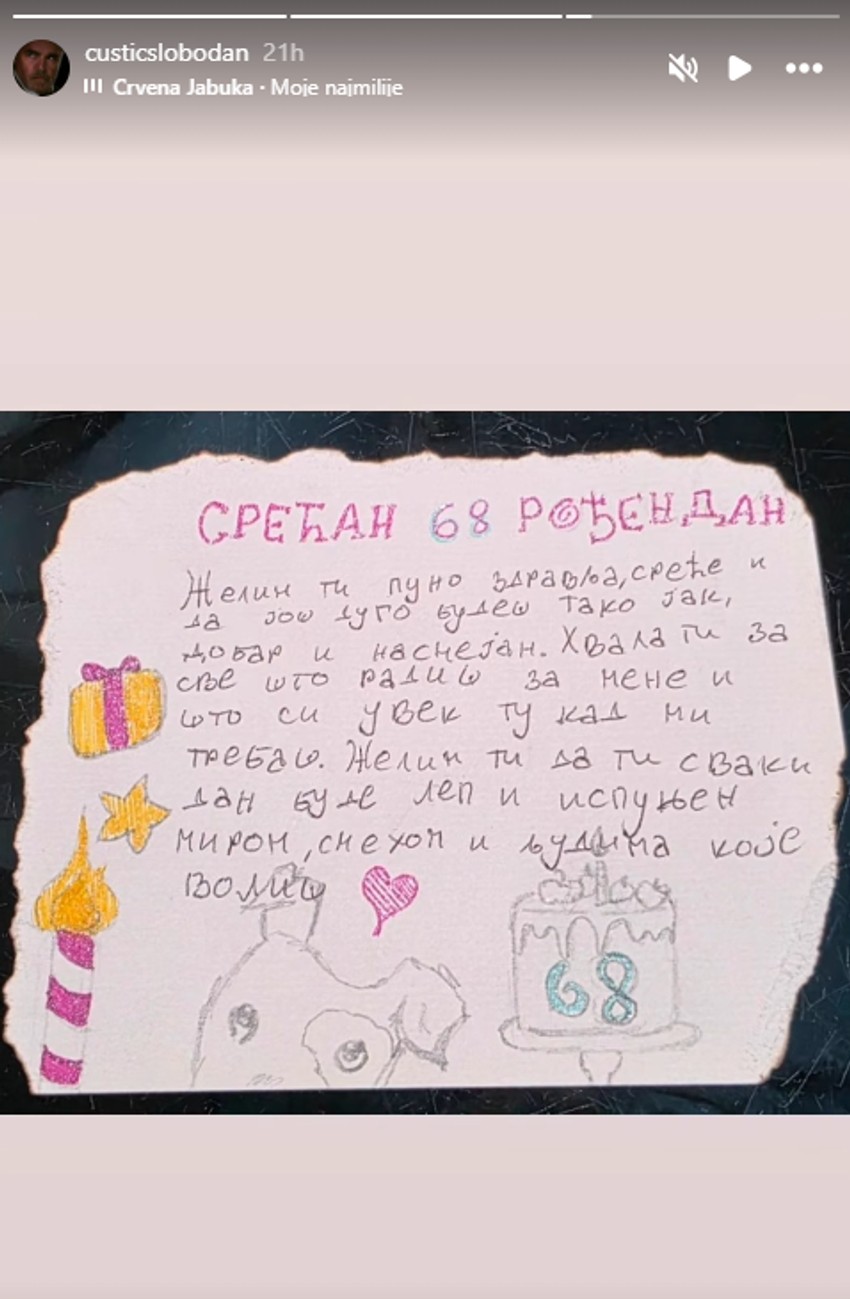 custicslobodan 21h
Crvena Jabuka · Moje najmilije
СРЕЋАН 68 РОЂЕНДАН
Желим ти пуно здравља, среће и
да још дуго будеш тако јак,
добар и насмејан. Хвала ти за
све што радиш за мене и
што си увек ту кад ми
требаш. Желим ти да ти сваки
дан буде леп и испуњен
миром, смехом и људима које
волиш
68